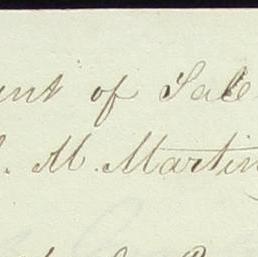 unt of Sale
. M. Martin